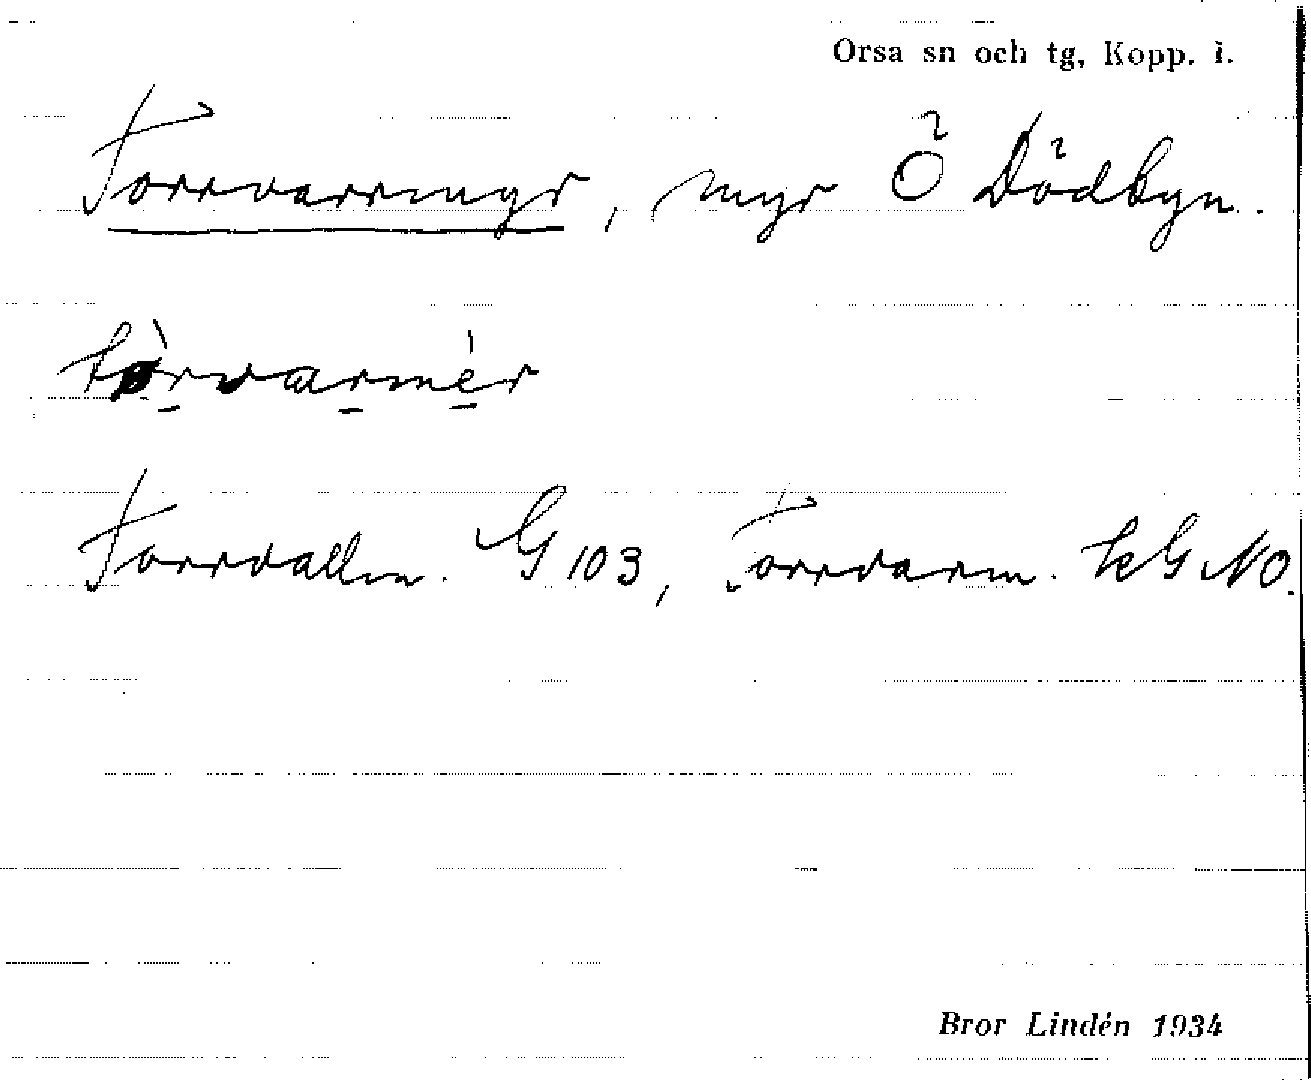 Orsa sn och tg, Kopp. l.
Torrvarrmyr, myr Ö Dödbyn.
tòrvarmér
Torrvallm. G 103, Torrvarm. kG NO.
Bror Lindén 1934